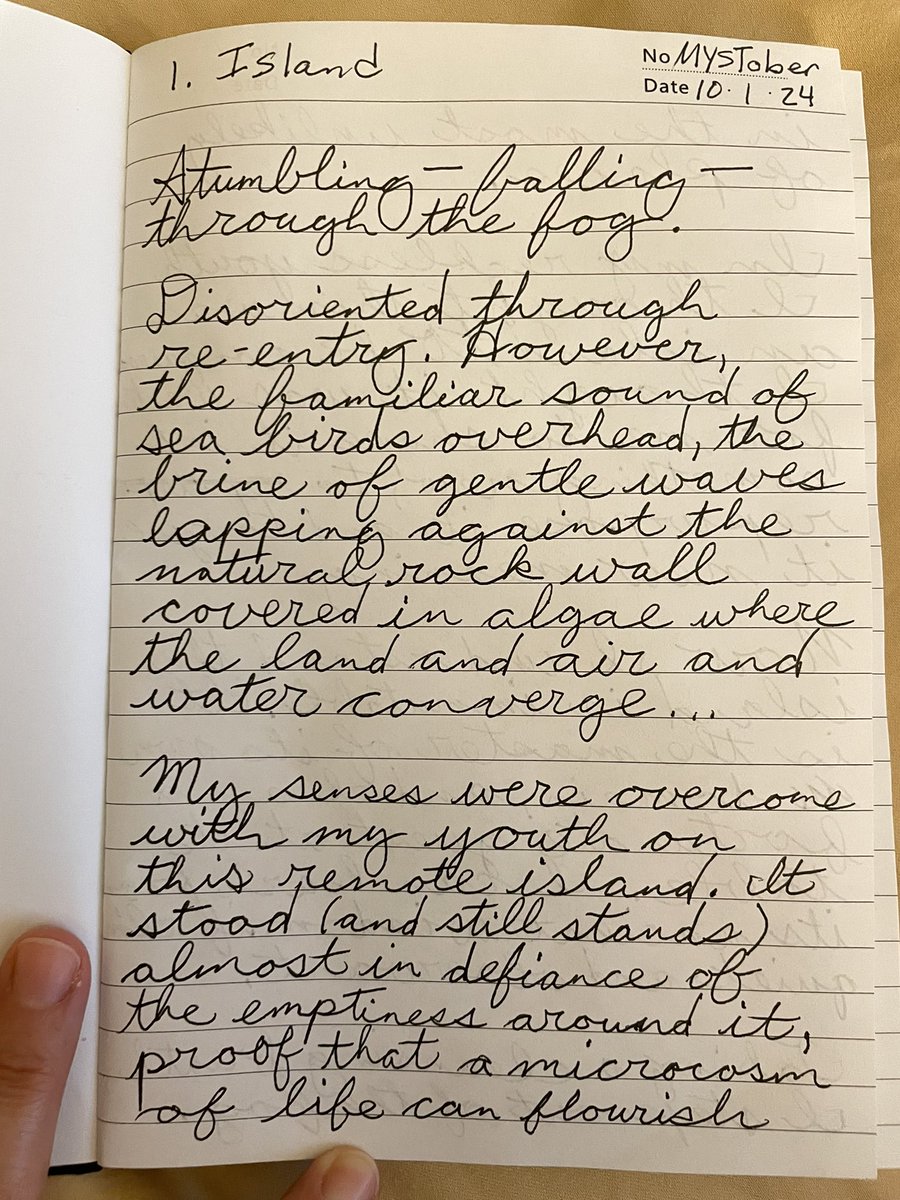 1. Island
No MYSTober
Date 10 · 1 · 24
Stumbling — falling —
through the fog.
Disoriented through
re-entry. However,
the familiar sound of
sea birds overhead, the
brine of gentle waves
lapping against the
natural rock wall
covered in algae where
the land and air and
water converge...
My senses were overcome
with my youth on
this remote island. It
stood (and still stands)
almost in defiance of
the emptiness around it,
proof that a microcosm
of life can flourish